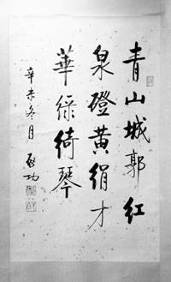 青山城郭红
泉磴黄绢才
華绿绮琴
辛未冬月 啟功